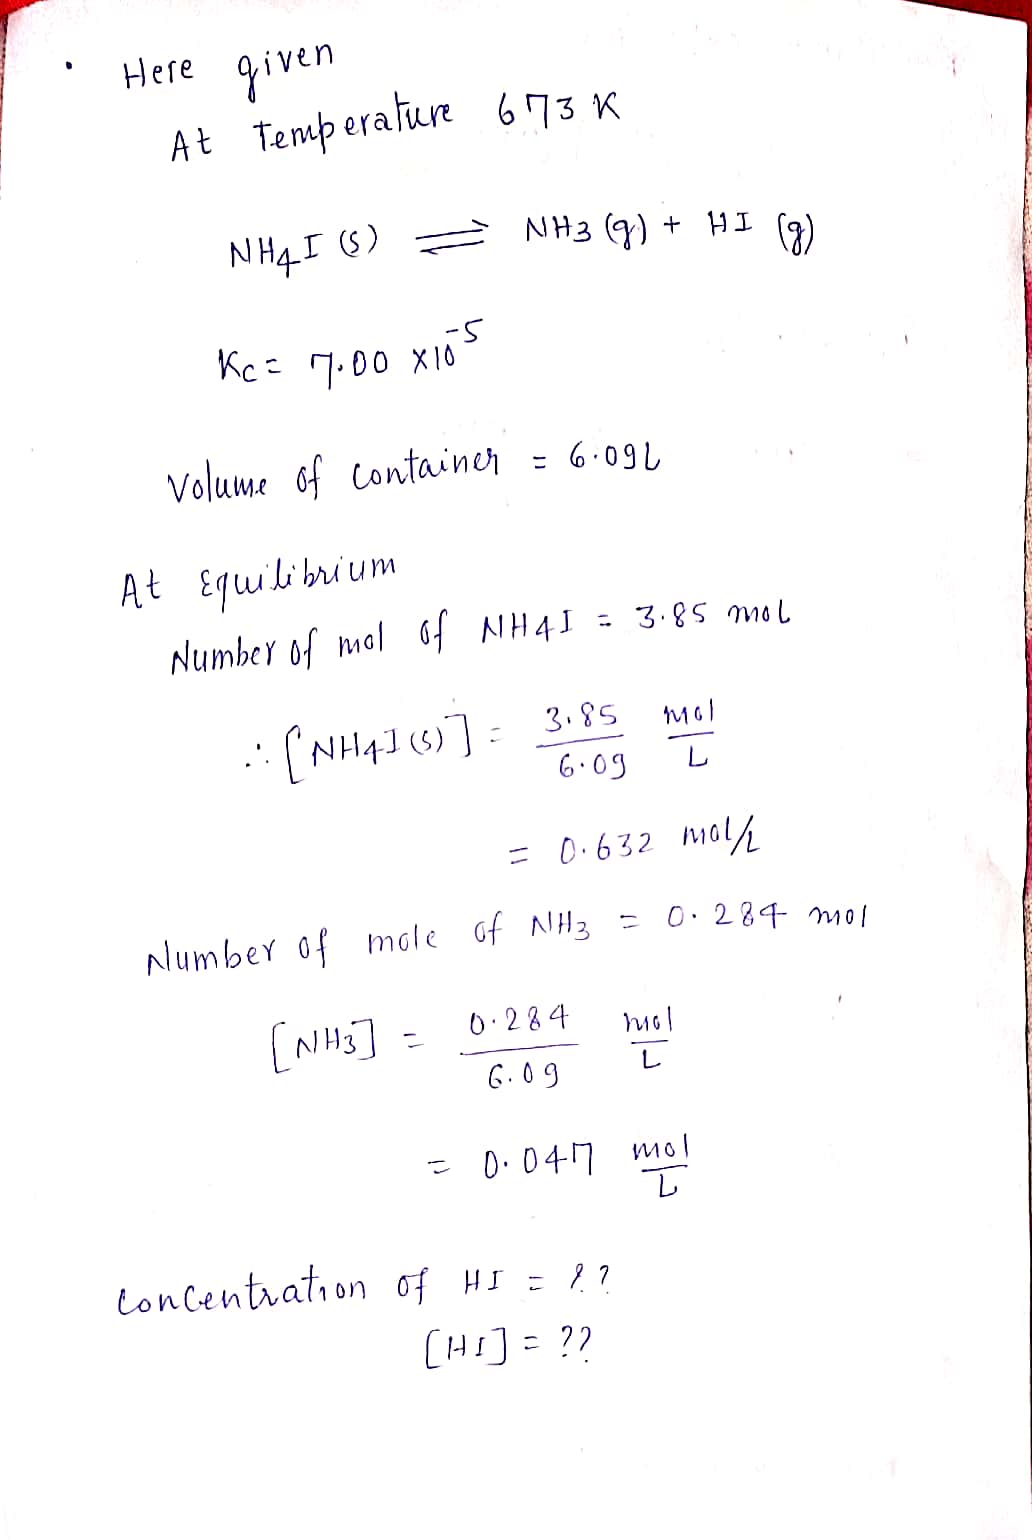 • Here given
At Temperature 673 K
NH4I (s) ⇌ NH3 (g) + HI (g)
Kc = 7.00 x10^-5
Volume of container = 6.09L
At Equilibrium
Number of mol of NH4I = 3.85 mol
∴ [NH4I (s)] = 3.85/6.09 mol/L
= 0.632 mol/L
Number of mole of NH3 = 0.284 mol
[NH3] = 0.284/6.09 mol/L
= 0.047 mol/L
Concentration of HI = ??
[HI] = ??